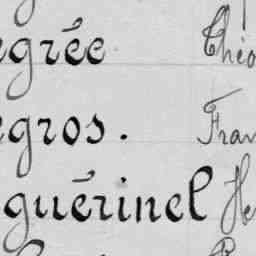 egrée Théo
egros. Fran
guérinel He